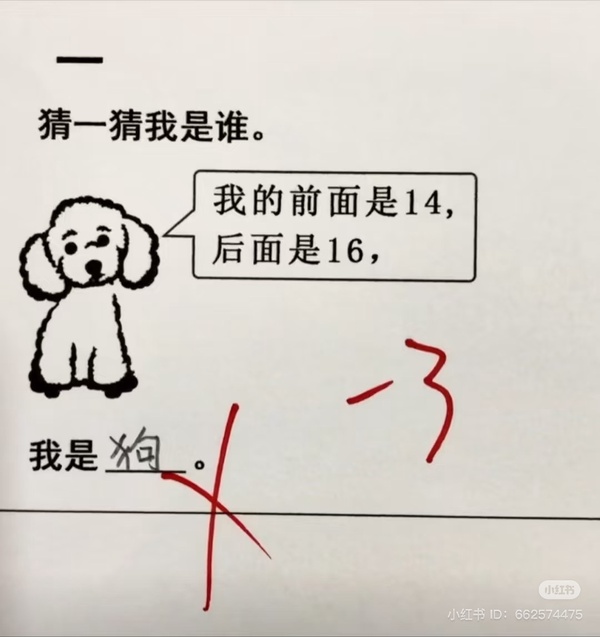 一
猜一猜我是谁。
我的前面是14,
后面是16,
-3
我是狗。
小红书
小红书 ID: 662574475